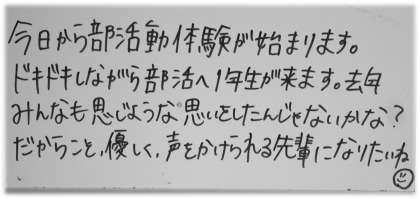 今日から部活動体験が始まります。
ドキドキしながら部活へ1年生が来ます。去年
みんなも思じような思いをしたんじゃないかな?
だからこそ,優しく,声をかけられる先輩になりたいね